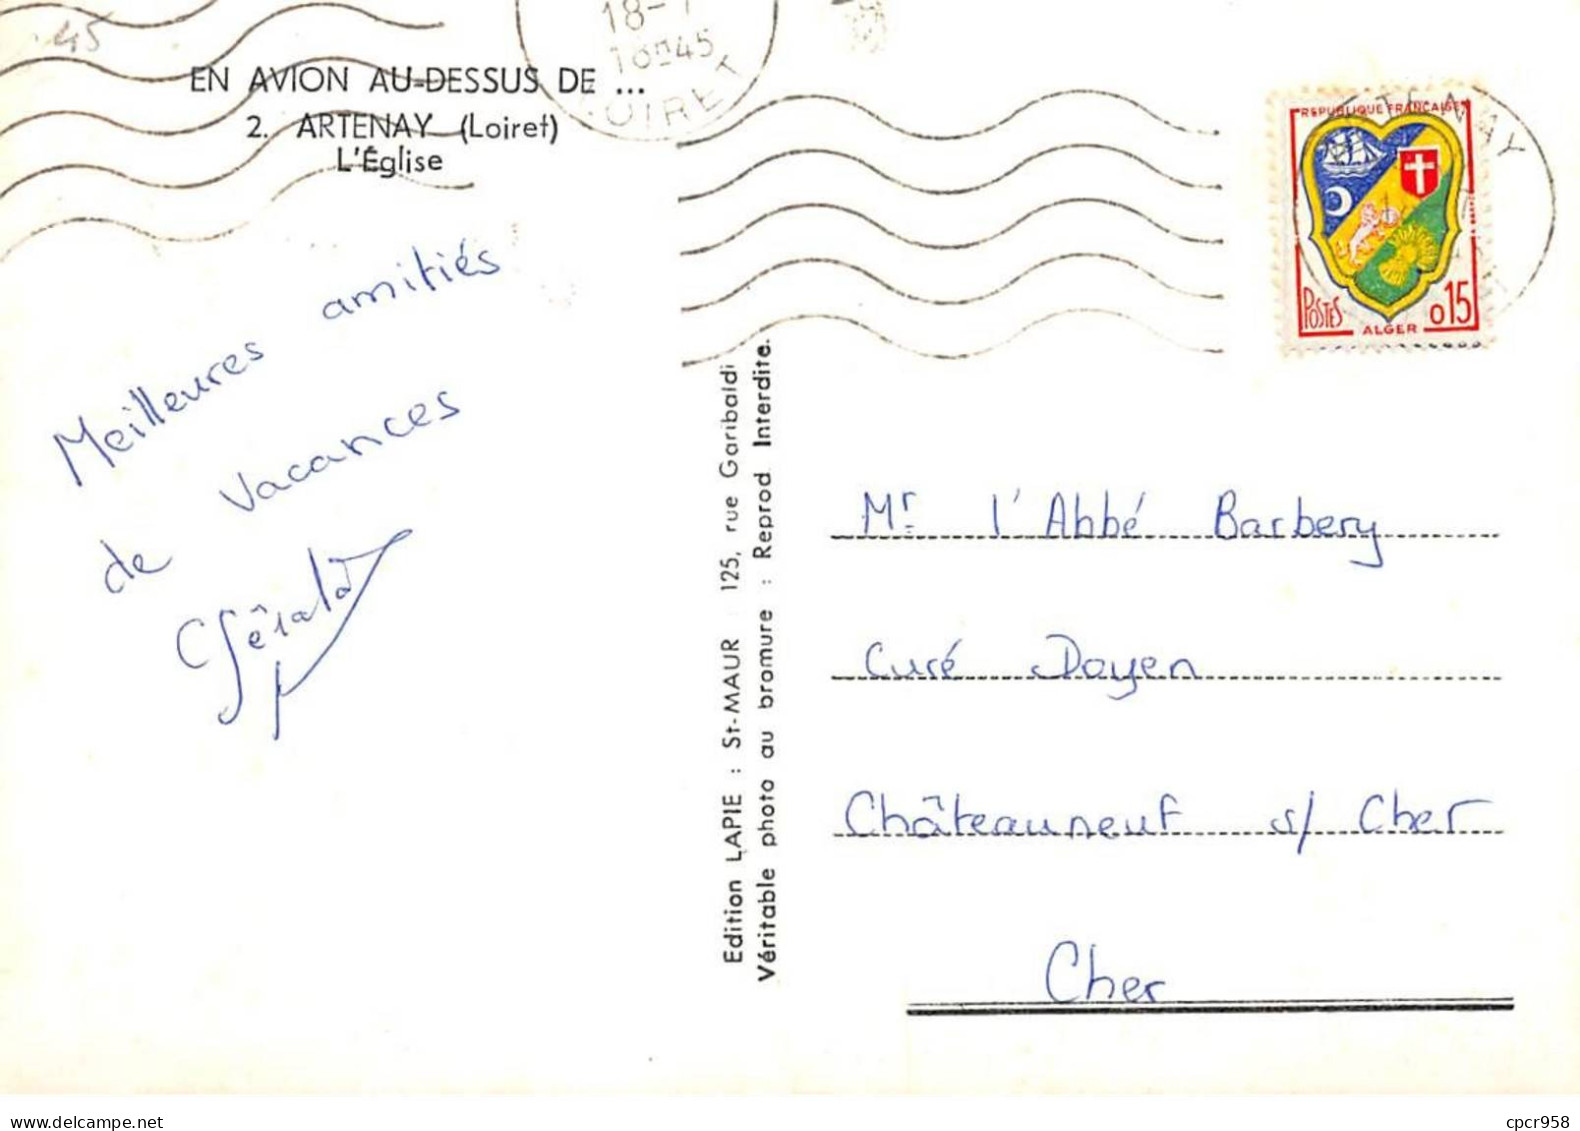 45
EN AVION AU-DESSUS DE ...
2. ARTENAY (Loiret)
L'Église
18-7
18H45
LOIRET
ARTENAY
REPUBLIQUE FRANÇAISE
POSTES
ALGER
0,15
Meilleures amitiés
de vacances
Gérald
Edition LAPIE : St-MAUR 125, rue Garibaldi
Véritable photo au bromure : Reprod Interdite.
Mr l'Abbé Barbery
Curé Doyen
Châteauneuf s/ Cher
Cher
www.delcampe.net
cpcr958